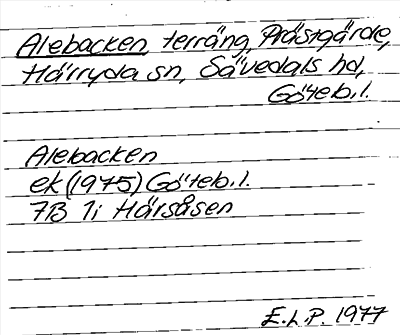 Alebacken, terräng, Prästgärde,
Härryda sn, Sävedals hd,
Göteb.l.
Alebacken
ek (1975) Göteb.l.
7B 7i Hårsåsen
E.L.P. 1977